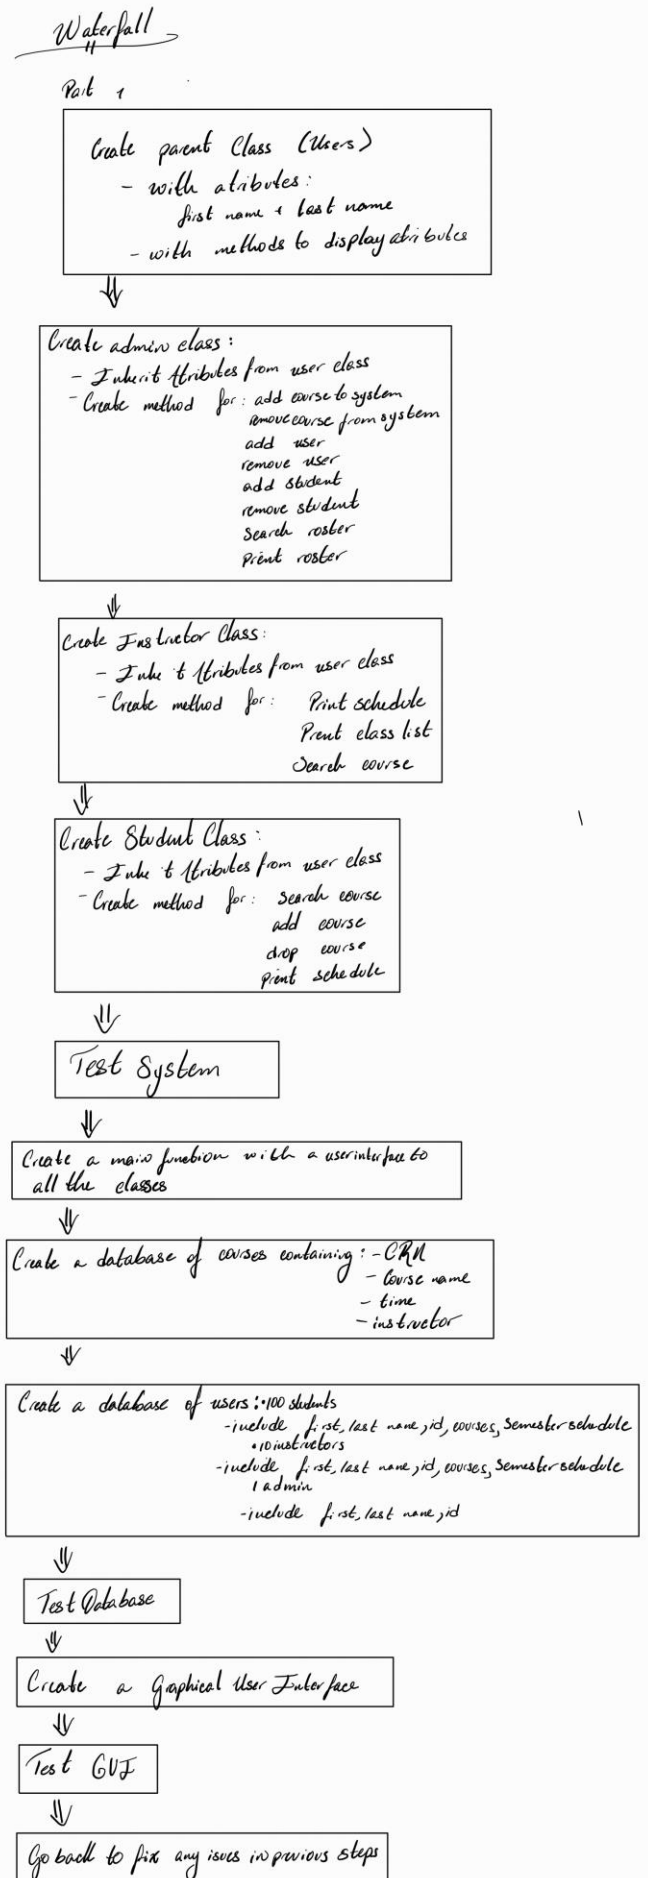 Waterfall
Part 1
Create parent Class (Users)
- with atributes:
first name + last name
- with methods to display atributes
Create admin class:
- Inherit Atributes from user class
- Create method for: add course to system
remove course from system
add user
remove user
add student
remove student
Search roster
Print roster
Create Instructor Class:
- Inhe t Atributes from user class
- Create method for: Print schedule
Print class list
Search course
Create Student Class:
- Inhe t Atributes from user class
- Create method for: Search course
add course
drop course
print schedule
Test System
Create a main function with a userinterface to
all the classes
Create a database of courses containing: - CRN
- Course name
- time
- instructor
Create a database of users: •100 students
- include first, last name, id, courses, Semester schedule
• 10 instructors
- include first, last name, id, courses, Semester schedule
1 admin
- include first, last name, id
Test Database
Create a Graphical User Interface
Test GUI
Go back to fix any isues in previous steps